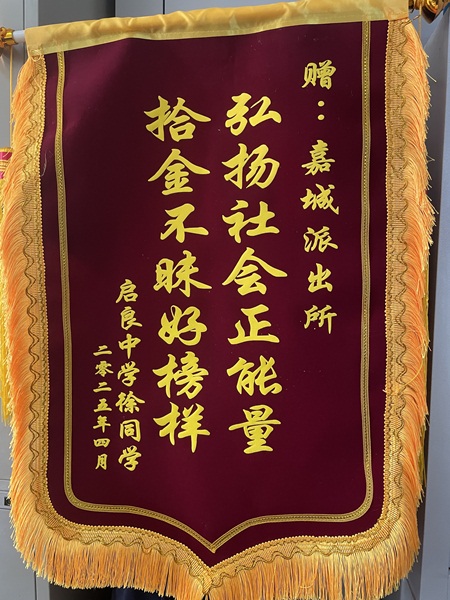 赠：嘉城派出所
弘扬社会正能量
拾金不昧好榜样
启良中学徐同学
二零二五年四月